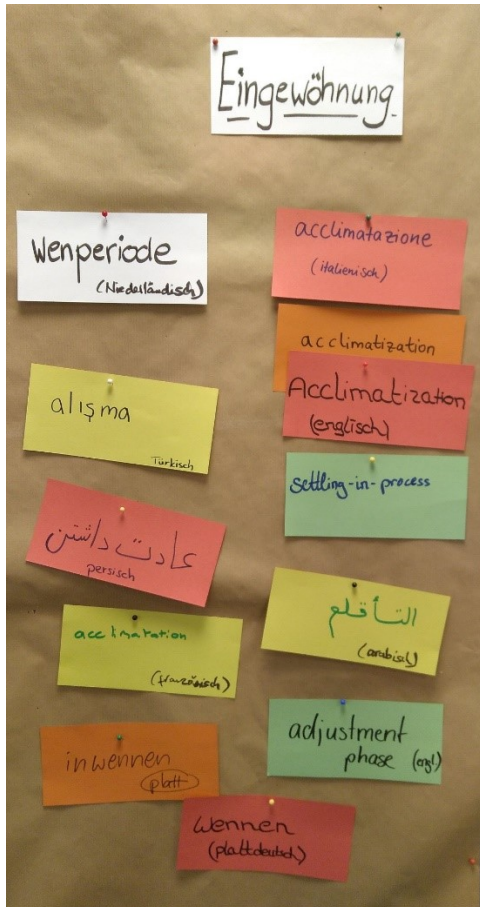 Eingewöhnung
wenperiode
(Niederländisch)
alışma
Türkisch
عادت داشتن
persisch
acclimatation
(französisch)
inwennen
platt
wennen
(plattdeutsch)
acclimatazione
(italienisch)
acclimatization
Acclimatization
(englisch)
settling-in-process
التأقلم
(arabisch)
adjustment
phase (engl.)